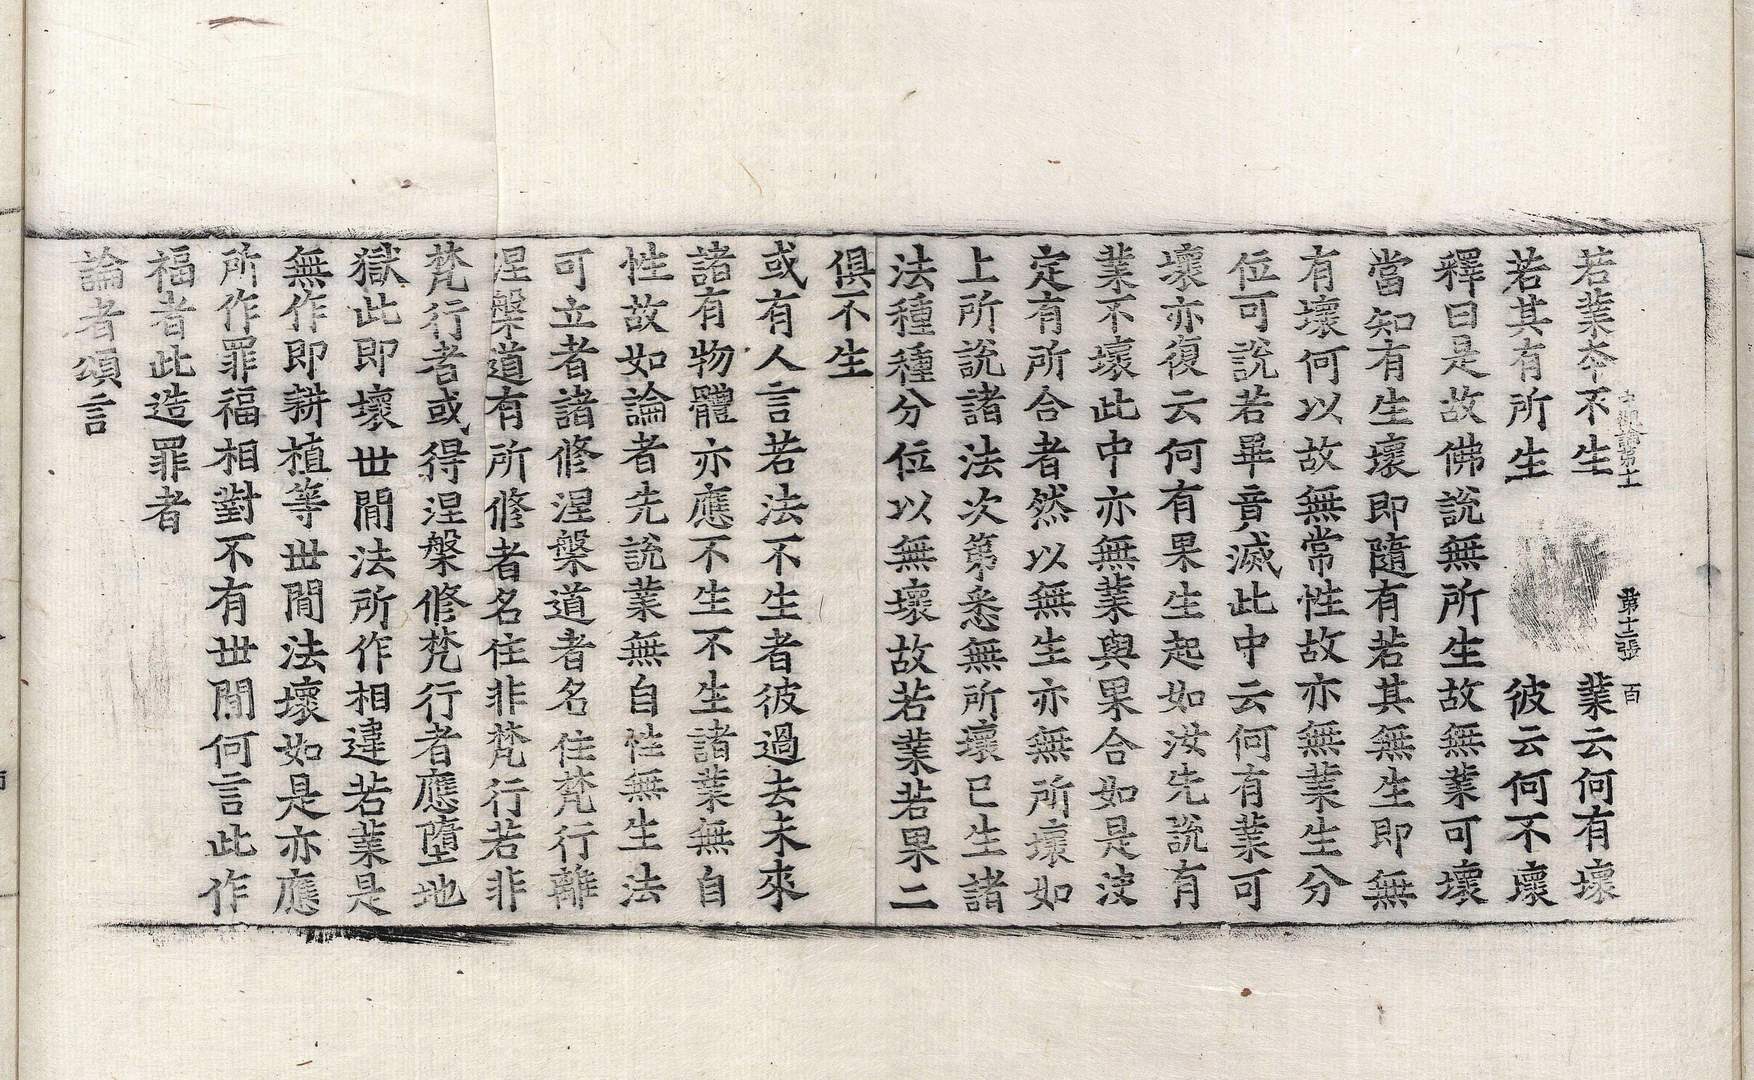 若業本不生　業云何有壞
若其有所生　彼云何不壞
釋曰是故佛說無所生故無業可壞
當知有生壞即隨有若其無生即無
有壞何以故無常性故亦無業生分
位可說若畢竟滅此中云何有業可
壞亦復云何有果生起如汝先說有
業不壞此中亦無業與果合如是決
定有所合者然以無生亦無所壞如
上所說諸法次第悉無所壞已生諸
法種種分位以無壞故若業若果二
俱不生
或有人言若法不生者彼過去未來
諸有物體亦應不生不生諸業無自
性故如論者先說業無自性無生法
可立者諸修涅槃道者名住梵行離
涅槃道有所修者名住非梵行若非
梵行者或得涅槃修梵行者應墮地
獄此即壞世間法所作相違若業是
無作即耕植等世間法壞如是亦應
所作罪福相對不有世間何言此作
福者此造罪者
論者頌言
第十二張　百